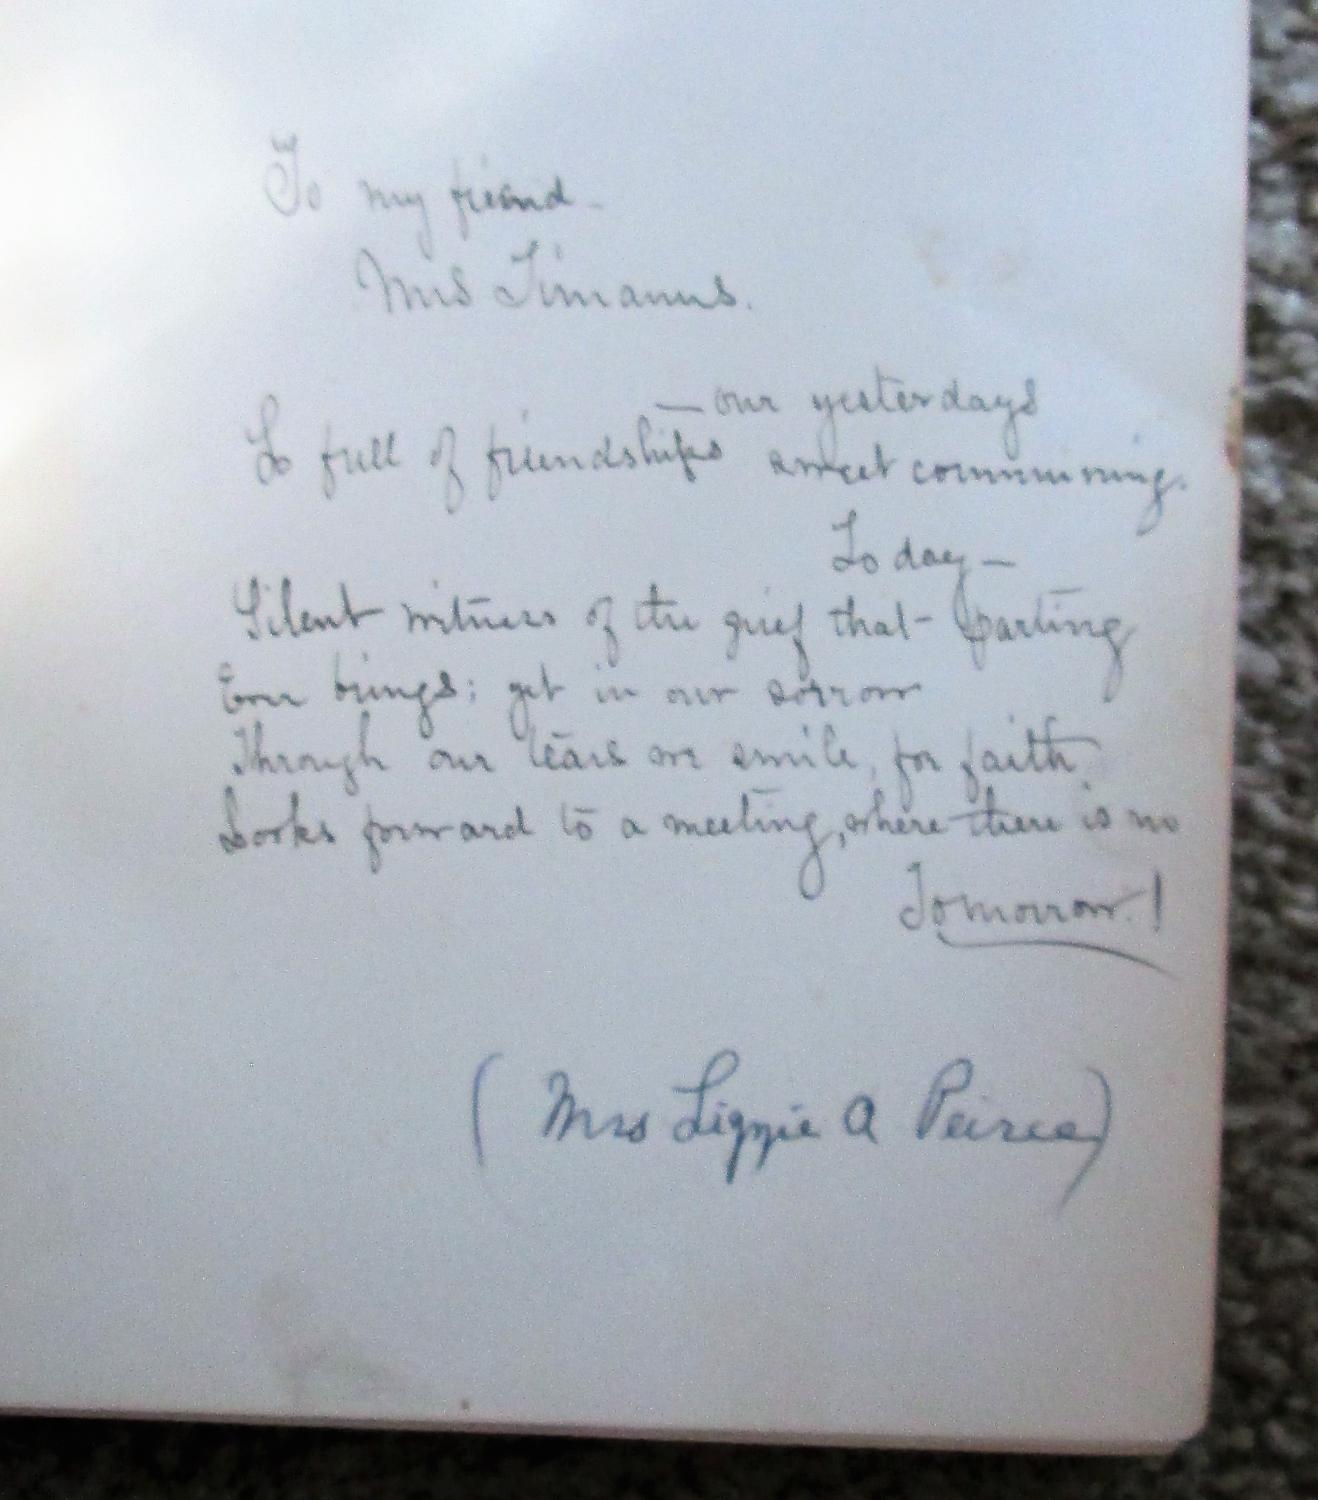 To my friend -
Mrs Timanus.
— our yesterdays
So full of friendships sweet communing.
Today —
Silent witness of the grief that parting
Ever brings; yet in our sorrow
Through our tears we smile, for faith
Looks forward to a meeting, where there is no
Tomorrow!
(Mrs Lizzie A Peirce)